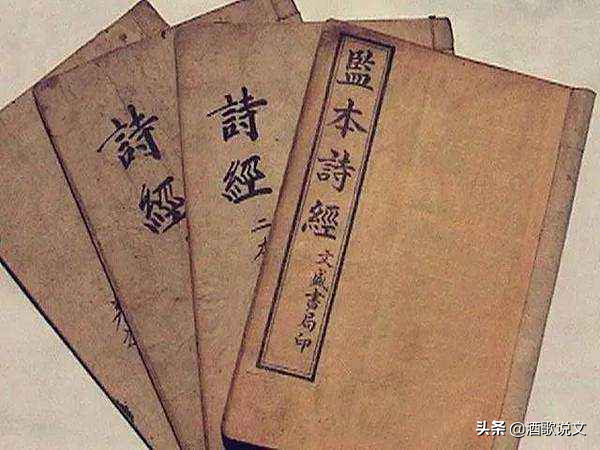 監本詩經
文盛書局印
詩經
二本
詩經
头条 @酒歌说文